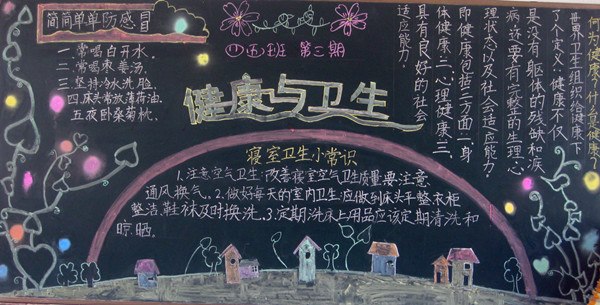 简简单单防感冒
一 常喝白开水,
二 常喝枣姜汤,
三.坚持冷水洗脸,
四.床头常放薄荷油.
五 夜卧桑菊枕.
四五班 第三期
健康与卫生
寝室卫生小常识
1.注意空气卫生:改善寝室空气卫生质量要注意
通风换气、2.做好每天的室内卫生:应做到床头平整衣柜
整洁,鞋袜及时换洗.3.定期洗床上用品应该定期清洗和
晾晒.
何为健康?什么是健康?
世界卫生组织给健康下
了个定义,健康不仅
是没有躯体的残缺和疾
病,许要有完整的生理心
理状态以及社会适应能力
即健康包括三方面一身
体健康二心理健康三.
具有良好的社会
适应能力.